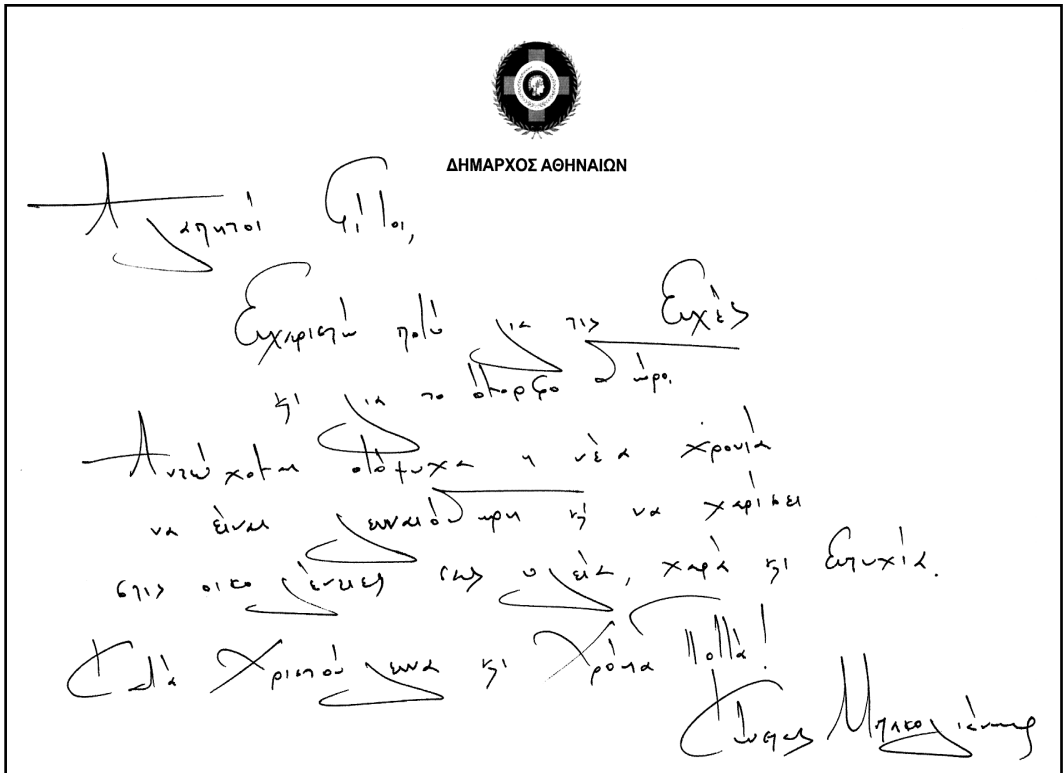 ΔΗΜΑΡΧΟΣ ΑΘΗΝΑΙΩΝ
Αγαπητοί Φίλοι,
Ευχαριστώ πολύ για τις Ευχές
κι για το όμορφο δώρο.
Αντεύχομαι ολόψυχα η νέα χρονιά
να είναι γενναιόδωρη κι να χαρίσει
στις οικογένειες σας υγεία, χαρά κι Επιτυχία.
Καλά Χριστούγεννα κι Χρόνια Πολλά!
Κώστας Μπακογιάννης